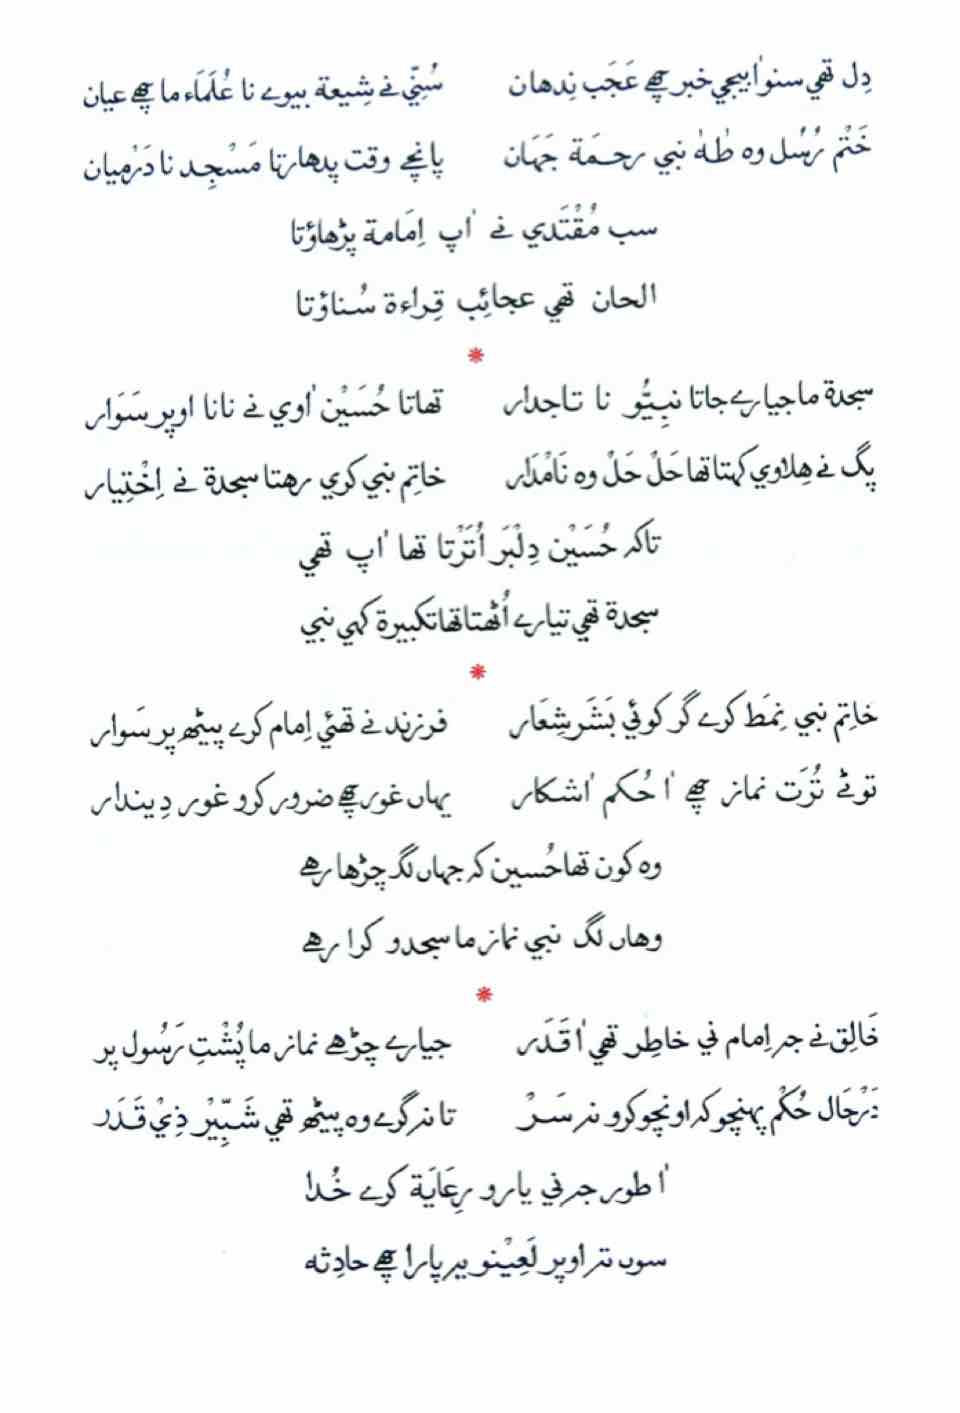 دِل تھي سنو اٰ بيجي خبر چھے عَجَب نِدھان سُنِّي نے شِيعة بيوے نا عُلَمَاء ما چھے عيان
خَتْمِ رُسُل وه طٰهٰ نبي رحـمَة جَهَان پانچے وقت پدھارتا مَسْجِد نا دَرْمِيان
سب مُقْتَدي نے اٰپ اِمَامة پڑھاؤتا
الحان تھي عجائِب قِراءة سُناؤتا
سجدة ما جيارے جاتا نبِيُّو نا تاجدار تھاتا حُسَيْن اٰوي نے نانا اوپر سَوَار
پگ نے هِلاوي كهتا تھا حَلْ حَلْ وه نَامْدَار خاتِم نبي كري رهتا سجدة نے اِخْتِيار
تاكه حُسَيْن دِلْبَر اُتَرْتا تھا اٰپ تھي
سجدة تھي تيارے اُٹھتا تھا تكبيرة كهي نبي
خاتِم نبي نِمَط كرے گر كوئي بَشَر شِعَار فرزند نے تھئي اِمام كرے پيٹھ پر سَوار
توٹے تُرَت نماز چھے اٰ حُكم اٰشكار يهاں غور چھے ضرور كرو غور دِيندار
وه كون تھا حُسين كه جهاں لگ چڑھا رهے
وهاں لگ نبي نماز ما سجدو كرا رهے
خَالِق نے جه اِمام ني خاطِر تھي اٰ قَدَر جيارے چڑھے نماز ما پُشْتِ رَسُول پر
دَرْحَال حُكْم پهنچو كه اونچو كرو نه سَرْ تا نه گرے وه پيٹھ تھي شَبِّيْر ذِيْ قَدَر
اٰ طور جه ني يارو رِعَايَة كرے خُدا
سوں ته اوپر لَعِيْنو يه پارا چھے حادِثه